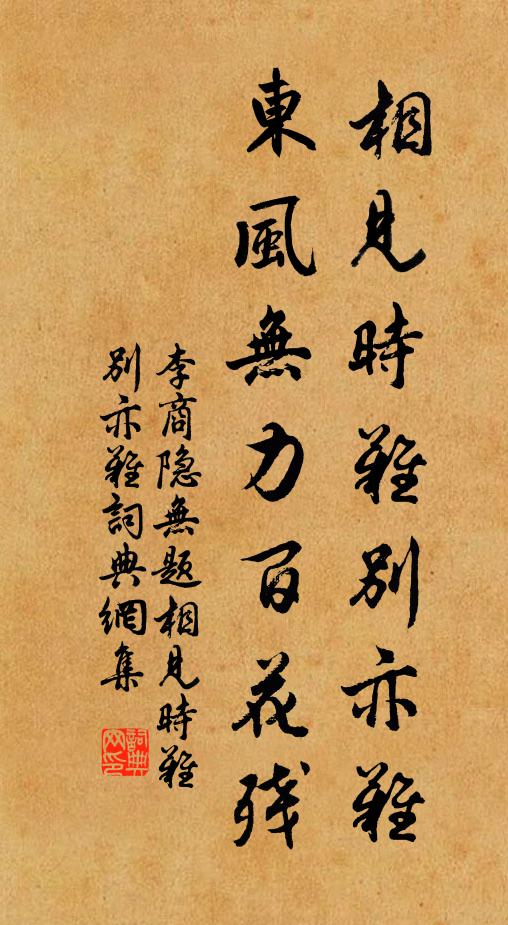 相見時難別亦難
東風無力百花殘
李商隐無题相見時難
別亦難詞典網集
詞典
网印